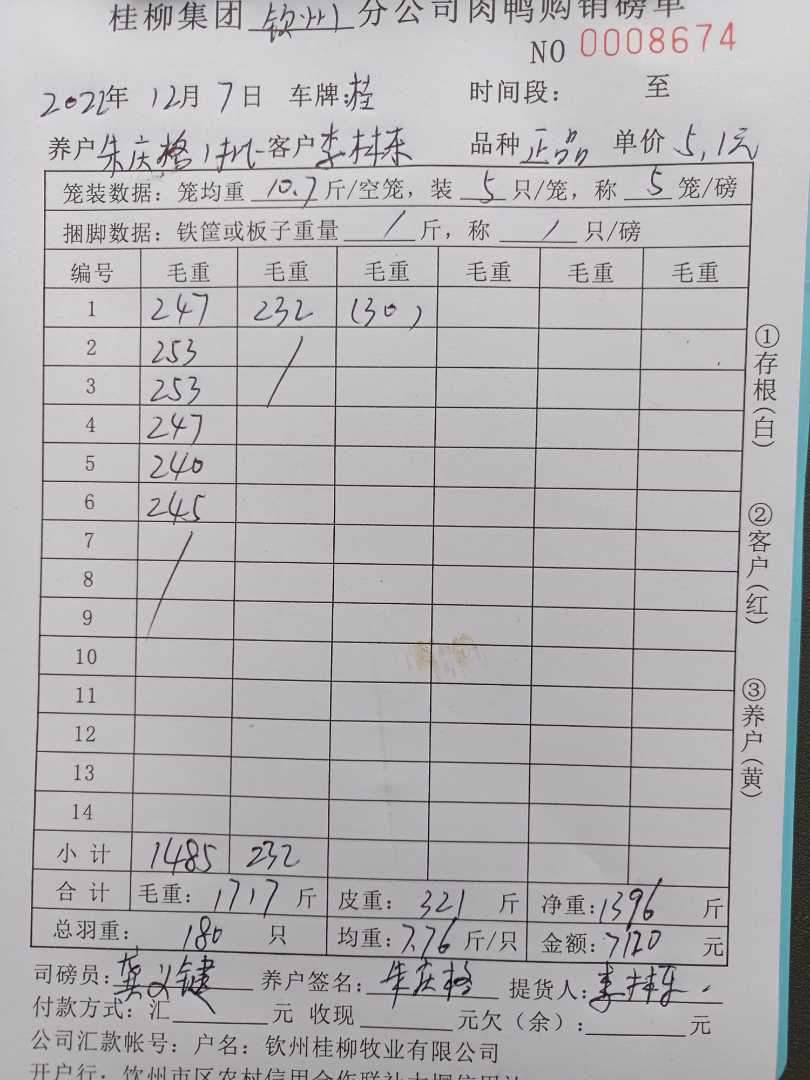 桂柳集团 钦州 分公司肉鸭购销磅单
NO 0008674
2022年 12月 7日 车牌:桂 时间段: 至
养户 朱庆格 客户 李林东 品种 正品 单价 5.1元
笼装数据:笼均重 10.7 斤/空笼,装 5 只/笼,称 5 笼/磅
捆脚数据:铁筐或板子重量 / 斤,称 / 只/磅
编号 毛重 毛重 毛重 毛重 毛重 毛重
1 247 232 (30)
2 253 /
3 253
4 247
5 240
6 245
7 /
8
9
10
11
12
13
14
小计 1485 232
合计 毛重: 1717 斤 皮重: 321 斤 净重: 1396 斤
总羽重: 180 只 均重: 7.76 斤/只 金额: 7120 元
司磅员: 龚义键 养户签名: 朱庆格 提货人: 李林东
付款方式:汇 元 收现 元欠(余): 元
公司汇款帐号:户名:钦州桂柳牧业有限公司
开户行:钦州市区农村信用合作联社大垌信用社
①存根(白)
②客户(红)
③养户(黄)